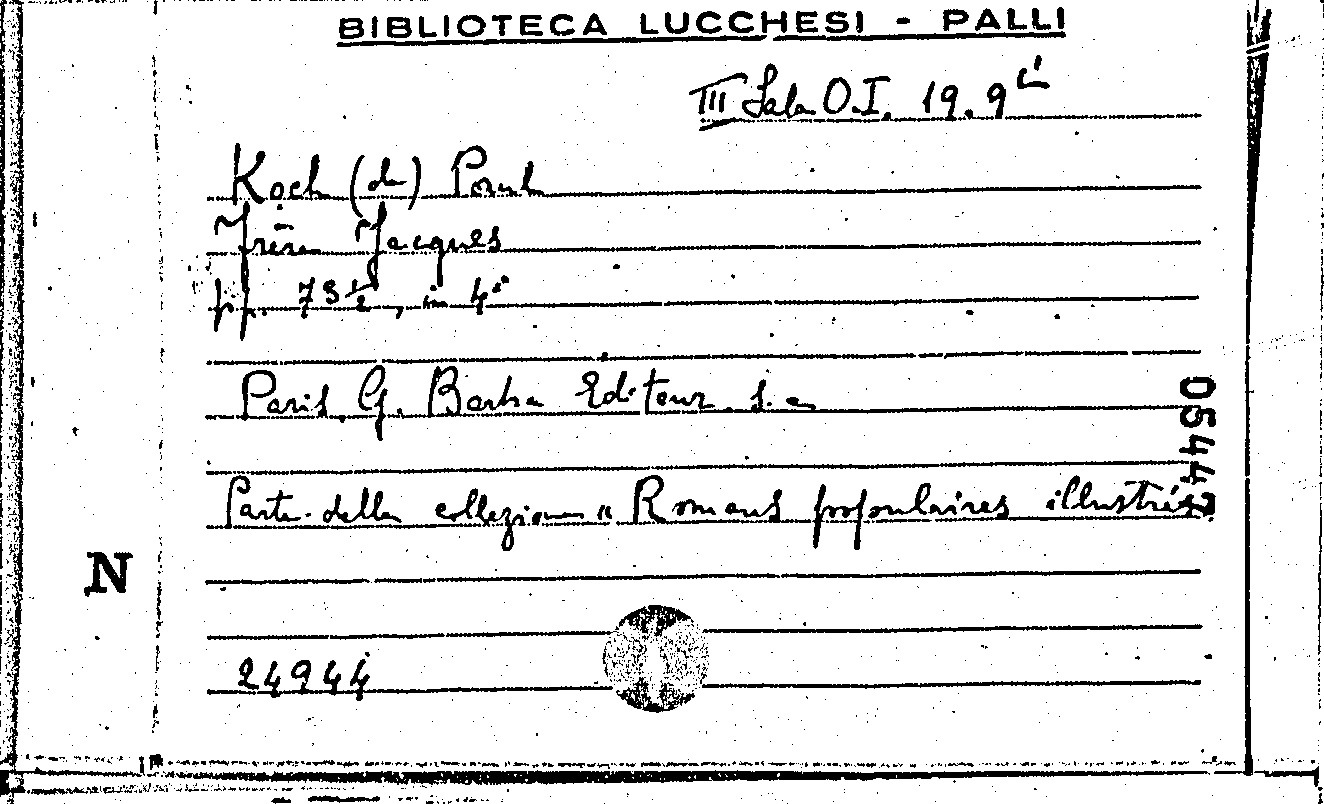 BIBLIOTECA LUCCHESI - PALLI
III Sala O.I. 19. 9
Koch (de) Paul
Frère Jacques
pp. 73 1/2, in 4°
Paris, G. Barba Editeur s. a.
Parte della collezione "Romans populaires illustrés
05442
N
24944